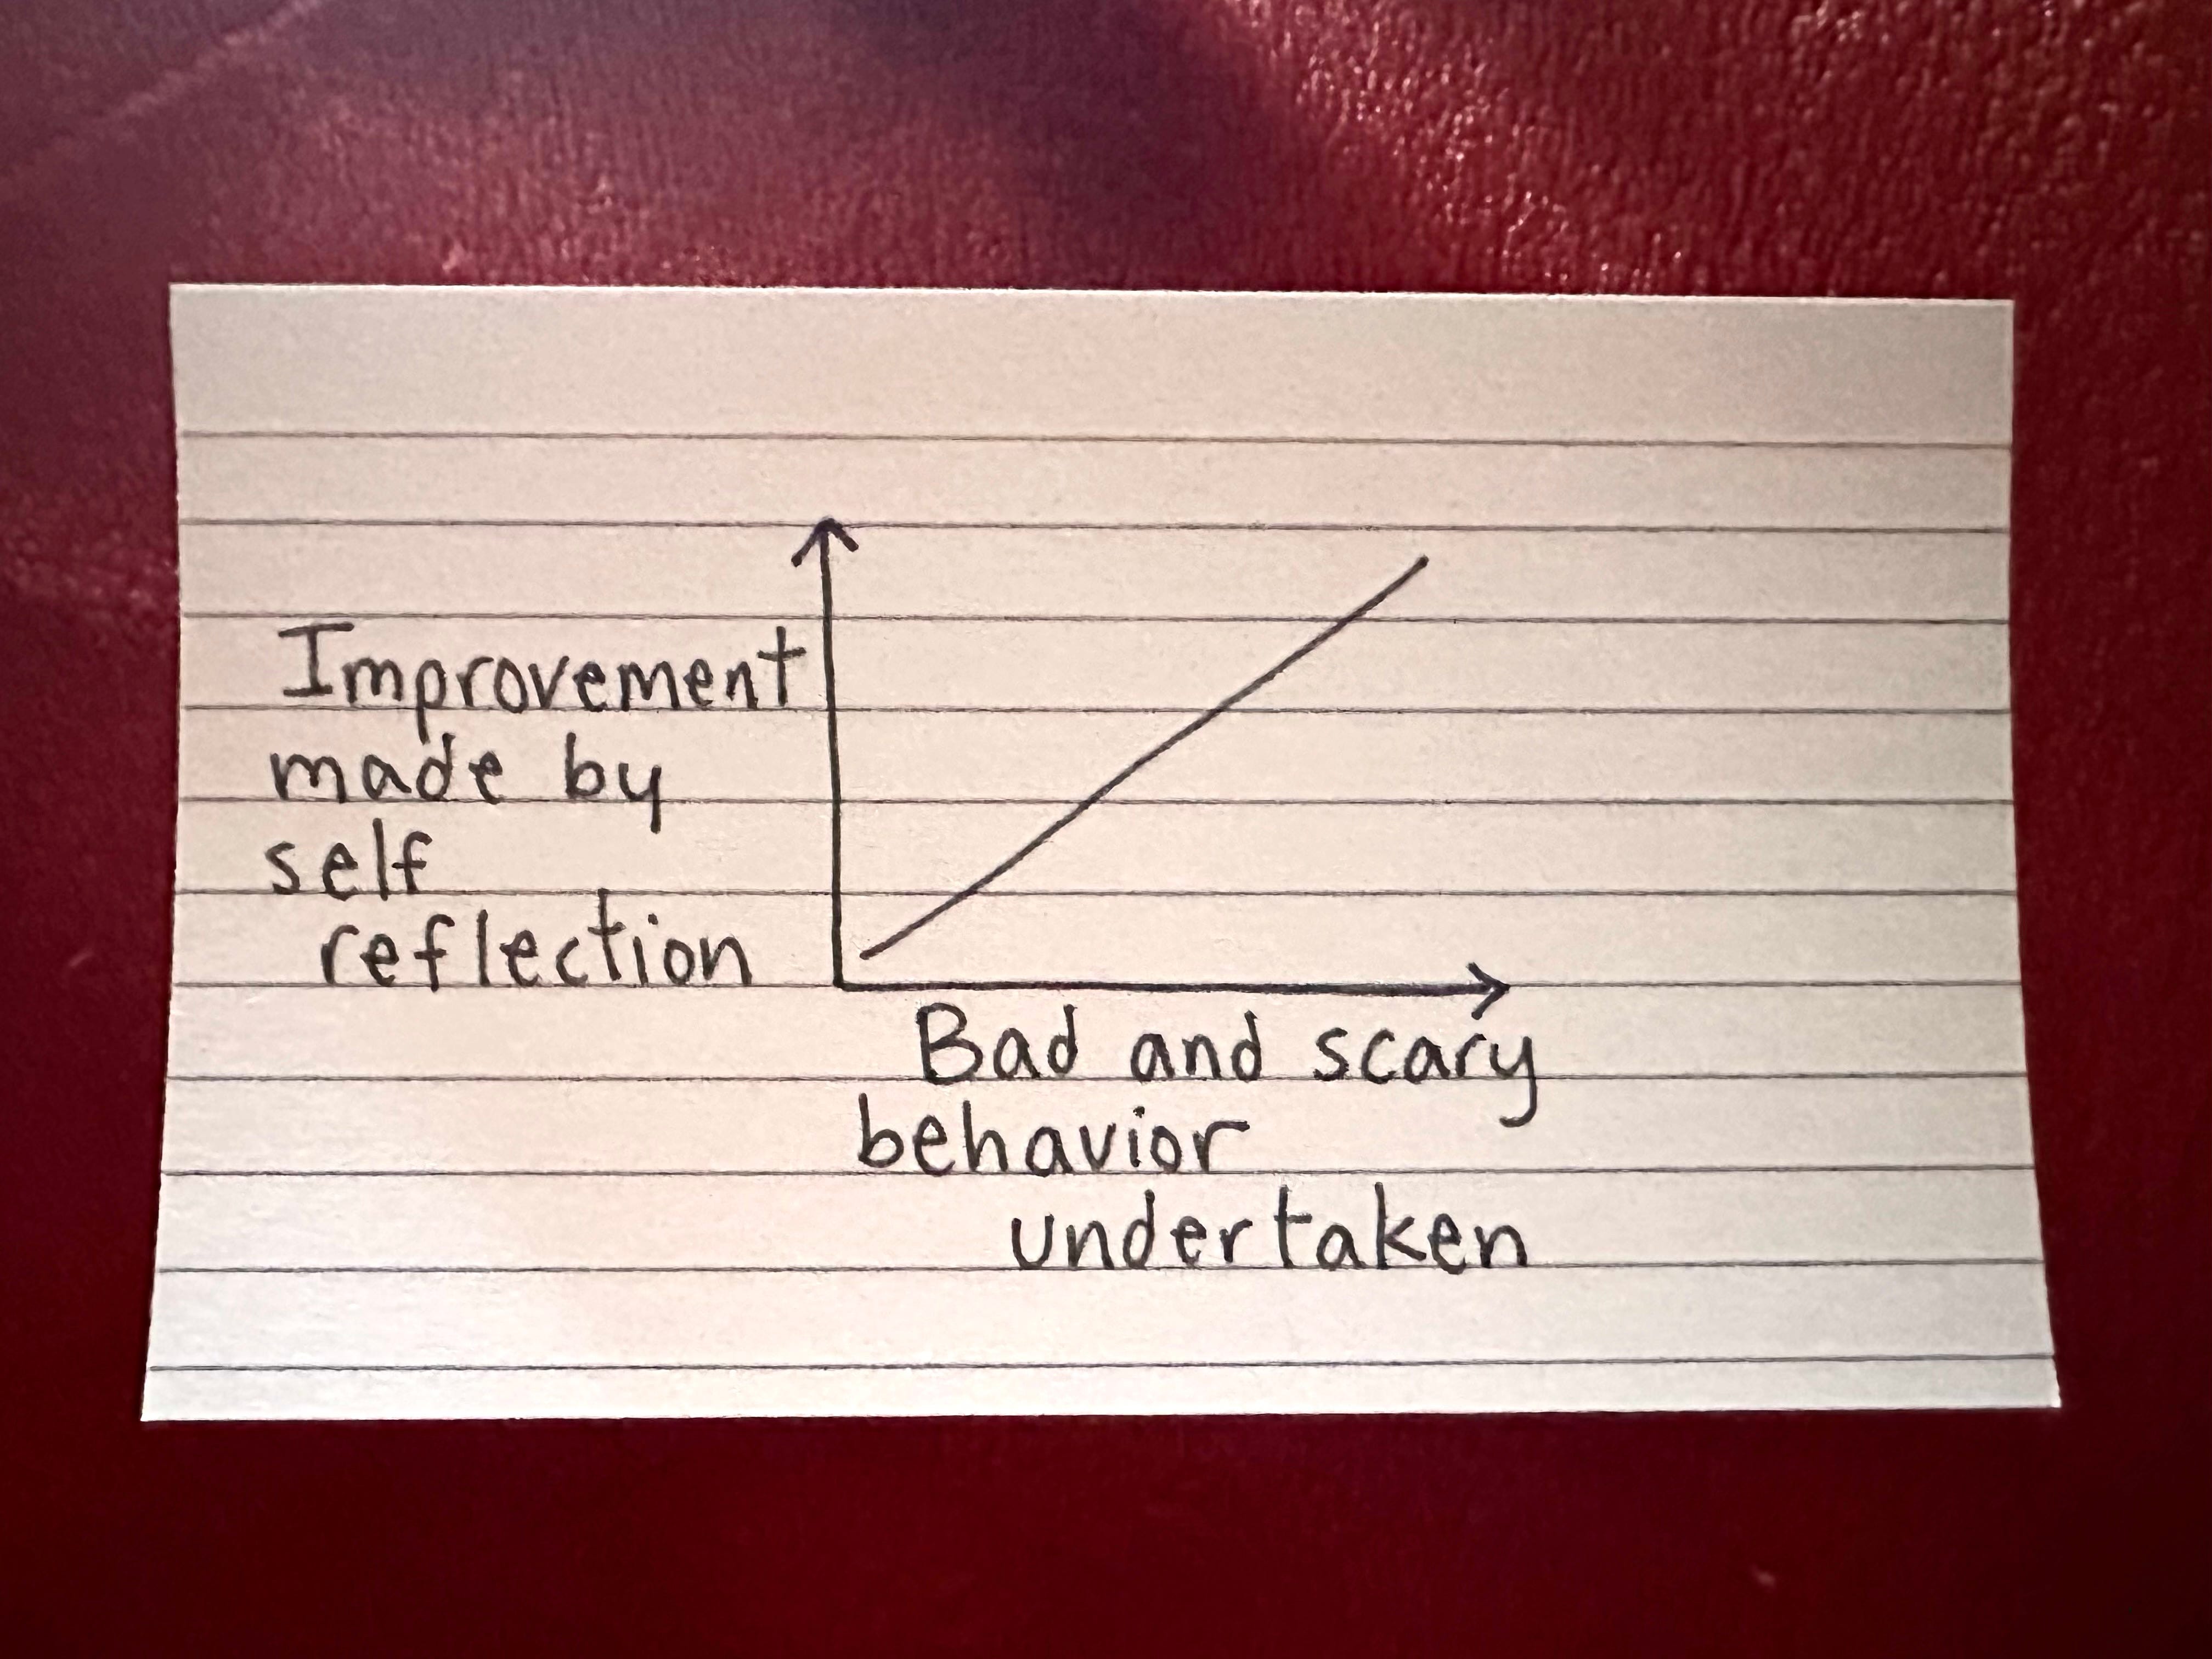 Improvement
made by
self
reflection
Bad and scary
behavior
undertaken